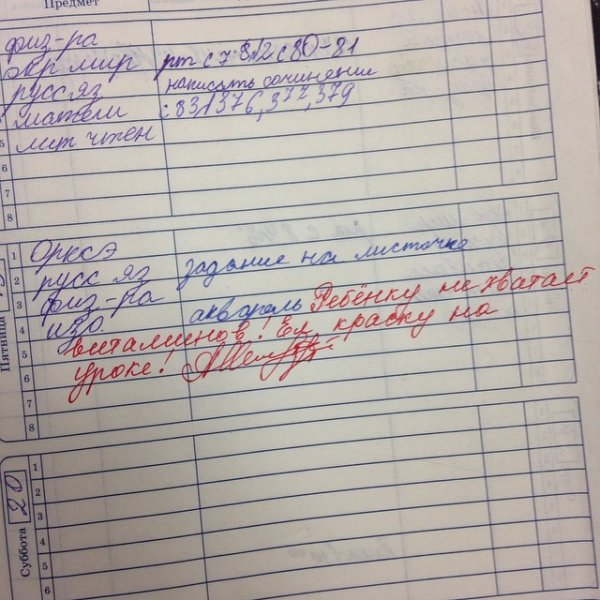 Предмет
физ-ра
окр мир рт с 78,2 с 80-81
русс яз написать сочинение
матем с 83, 376, 377, 379
5 лит чтен
6
7
8
Пятница
1 ОРКСЭ
2 русс яз задание на листочке
3 физ-ра
4 изо. акварель Ребёнку не хватает
витаминов! Ел краску на
5 уроке!
6
7
8
Суббота 20
1
2
3
4
5
6